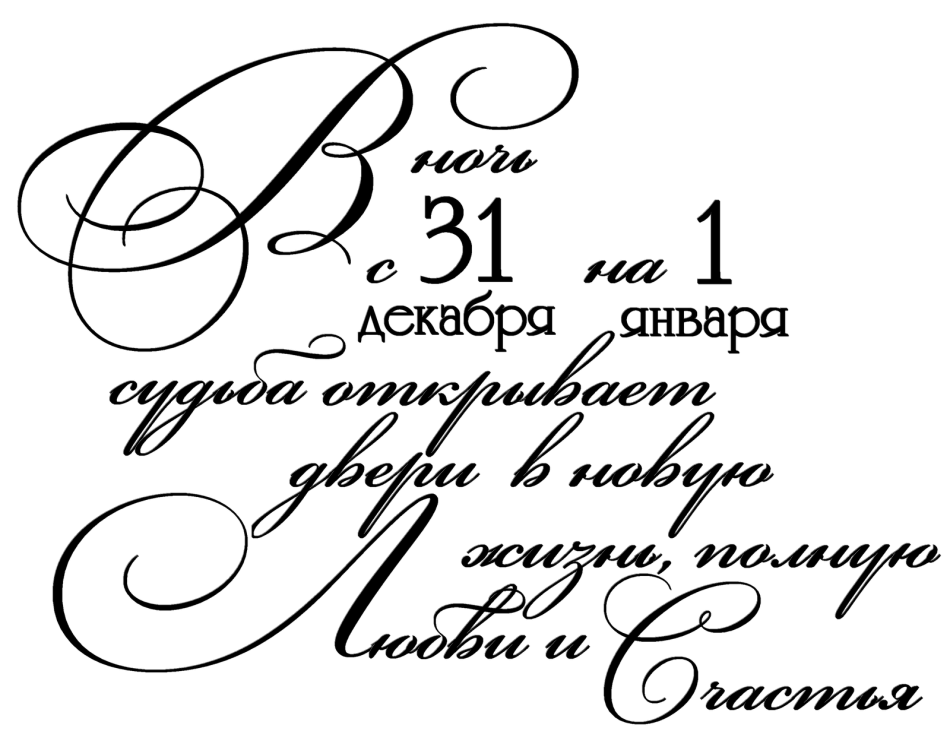 В ночь
с 31 на 1
декабря января
судьба открывает
двери в новую
жизнь, полную
Любви и
Счастья